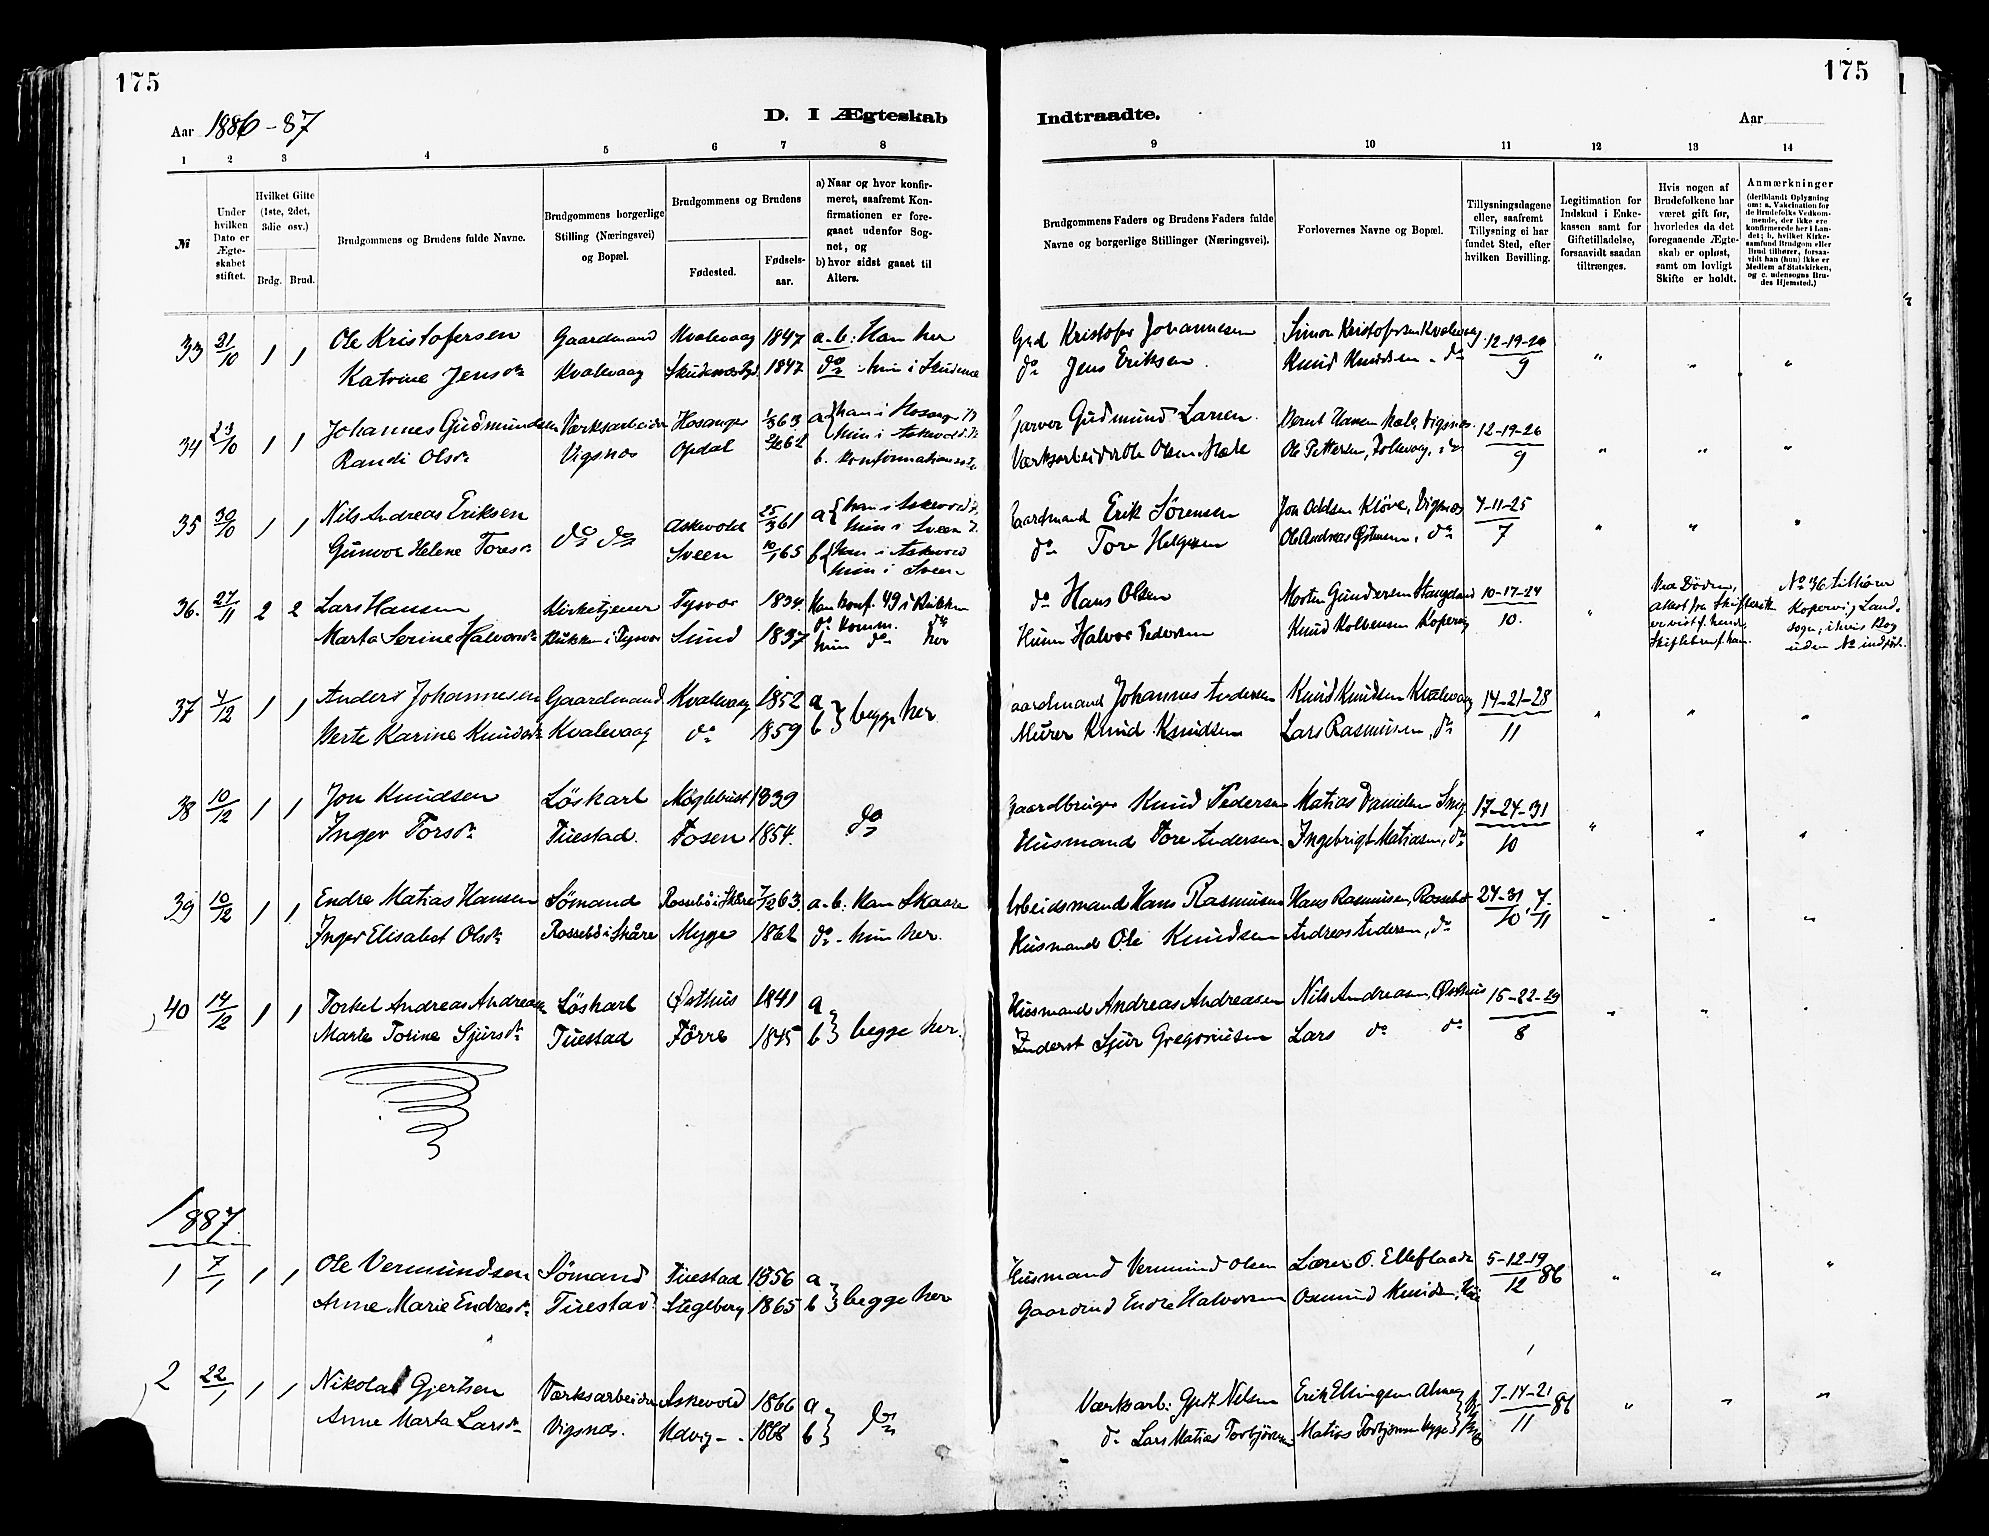 175
175
Aar 1886-87
D. I Ægteskab Indtraadte.
Aar
1 2 3 4 5 6 7 8 9 10 11 12 13 14
№
Under hvilken Dato er Ægteskabet stiftet.
Hvilket Gifte (1ste, 2det, 3die osv.)
Brdg. Brud.
Brudgommens og Brudens fulde Navne.
Brudgommens borgerlige Stilling (Næringsvei) og Bopæl.
Brudgommens og Brudens
Fødested.
Fødselsaar.
a) Naar og hvor konfirmeret, saafremt Konfirmationen er foregaaet udenfor Sognet, og
b) hvor sidst gaaet til Alters.
Brudgommens Faders og Brudens Faders fulde Navne og borgerlige Stillinger (Næringsvei).
Forlovernes Navne og Bopæl.
Tillysningsdagene eller, saafremt Tillysning ei har fundet Sted, efter hvilken Bevilling.
Legitimation for Indskud i Enkekassen samt for Giftetilladelse, forsaavidt saadan tiltrænges.
Hvis nogen af Brudefolkene har været gift før, hvorledes da det foregaaende Ægteskab er opløst, samt om lovligt Skifte er holdt.
Anmærkninger (deriblandt Oplysning om: a. Vakcination for de Brudefolks Vedkommende, der ikke ere konfirmerede her i Landet; b. hvilket Kirkesamfund Brudgom eller Brud tilhører, forsaavidt han (hun) ikke er Medlem af Statskirken, og c. udensogns Brudes Hjemsted.)
33 21/10 1 1 Ole Kristofersen Gaardmand Kvalevaag 1847 a-b: Han her Grd Kristofer Johannesen Simon Kristofersen Kvalevaag 12-19-26
Katrine Jensdr Kvalevaag 1847 do - hun i Skudenæs do Jens Eriksen Knud Knudsen - do 9
34 23/10 1 1 Johannes Gudmundsen Værksarbeider Hosanger 1/3 63 a han i Hosanger Garver Gudmund Larsen 12-19-26
Randi Olsdr Vigsnæs Opdal 62 hun i Askevold Ole Pettersen 9
b. Konfirmations
35 30/10 1 1 Nils Andreas Eriksen do do Askevold 25/3 61 a han i Askevold Gaardmand Erik Sørensen Vigsnæs 4-11-25
Gunvor Helene Toresdr Sveen 10/1 65 hun i Sveen do Tore Helgesen Ole Andreas do 7
b han i Askevold
hun i Sveen
36. 27/11 2 2 Lars Hansen Kirketjener Tysvær 1834. Han konf. 49 i Bukken do Hans Olsen Morten Gundersen Stangeland 10-17-24 Ved Døden,
Marta Serine Halvorsdr Bukken i Tysvær Sund 1837 hun do her Husm Halvor Pedersen Knud Kolbensen Kopervig 10.
37 4/12 1 1 Anders Johannesen Gaardmand Kvalevaag 1852 a b begge her Gaardmand Johannes Andersen Knud Knudsen Kvalevaag 14-21-28
Berte Karine Knudsdr Kvalevaag do 1859 Murer Knud Knudsen Lars Rasmussen, do 11
38 10/12 1 1 Jon Knudsen Løskarl Møglebust 1839 do Gaardbruger Knud Pedersen Matias Danielsen 17-24-31
Inger Torsdr Tuestad. Fosen 1854. Husmand Tore Andersen Ingebrigt Matiasen, do 10
39 10/12 1 1 Endre Matias Hansen Sømand Rossebø i Skåre 7/12 63. a-b: Han Skaare Arbeidsmand Hans Rasmussen Hans Rasmussen, Rossebø 24-31/10, 7/11
Inger Elisabet Olsdr Rossebø i Skåre Mygge 1862 do - hun her. Husmand Ole Knudsen Andreas Andersen, do
40 14/12 1 1 Torkel Andreas Andreasen Løskarl Østhus 1841 a b begge her. Husmand Andreas Andreasen Nils Andreasen, Østhus 15-22-29
Marta Torine Sjursdr Tuestad Førre 1845 Inderst Sjur Gregoriusen Lars do do 8
1887.
1 7/1 1 1 Ole Vermundsen Sømand Tuestad 1856 a b begge her Husmand Vermund Olsen Lærer O. Elleflaadt 5-12-19/12 86
Anne Marie Endresdr Tuestad Stegberg 1865 Gaardmd Endre Halvorsen Osmund Knudsen
2 22/1 1 1 Nikolai Gjertsen Værksarbeider Askevold 1866 a b do Værksarb: Gjert Nilsen Erik Ellingsen 7-14-21/11 86
Anne Marta Larsdr Vigsnæs. Udvig 1868 do Lars Matias Torbjørnsen Matias Torbjørnsen Mygge